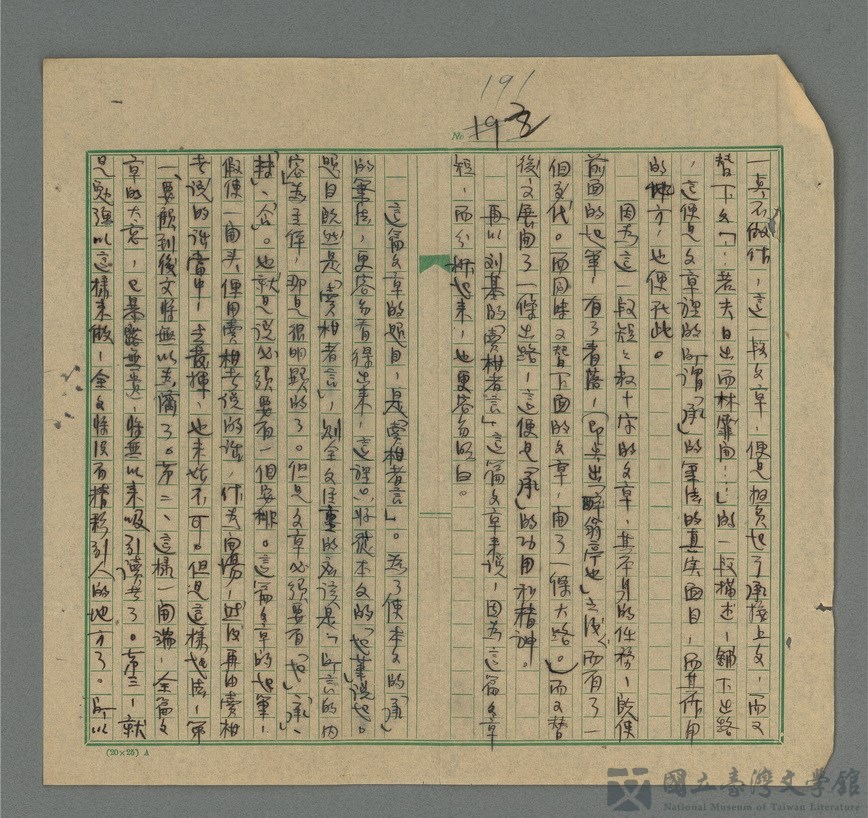 191
No
一真不做作，這一段文章，便是担負起了承接上文，而又
替下文「…若夫日出而林霏開…」的一段描述，鋪下出路
，這便是文章裡的所謂「承」的筆法的真実面目，而其作用
的地方，也便在此。
因為這一段短短数十字的文章，其本身的任務，既使
前面的起筆，有了着落，（即點出「醉翁亭也」之後，而有了一
個交代。而同時又替下面的文章，開了一條大路。）而又替
後文展開了一條出路，這便是「承」的功用和精神。
再以劉基的「賣柑者言」這篇文章來說，因為這篇文章
短，而分析起來，也更容易明白。
這篇文章的題目，是「賣柑者言」。為了使本文的「承」
的筆法，更容易看得出來，這裡必將從本文的「起筆」說起。
題目既然是「賣柑者言」，則全文注重的應該是「所言的内
容」為主体，那是很明顯的了。但是文章必須要有「起」、「承」、
「轉」、「合」。也就是說必須要有一個安排。這篇文章的起筆，
假使一開头，便用賣柑者說的話，作為開場，然後再由賣柑
者說的話當中，去發揮，也未始不可。但是這樣起法，第
一、要顧到後文將無以為濟了。第二、這樣一開端，全篇文
章的大意，已暴露無遺，將無以來吸引讀者了。第三，就
是勉強以這樣來做，全文將没有精彩引人的地方了。所以
(20×25) A
國立臺灣文學館
National Museum of Taiwan Literature